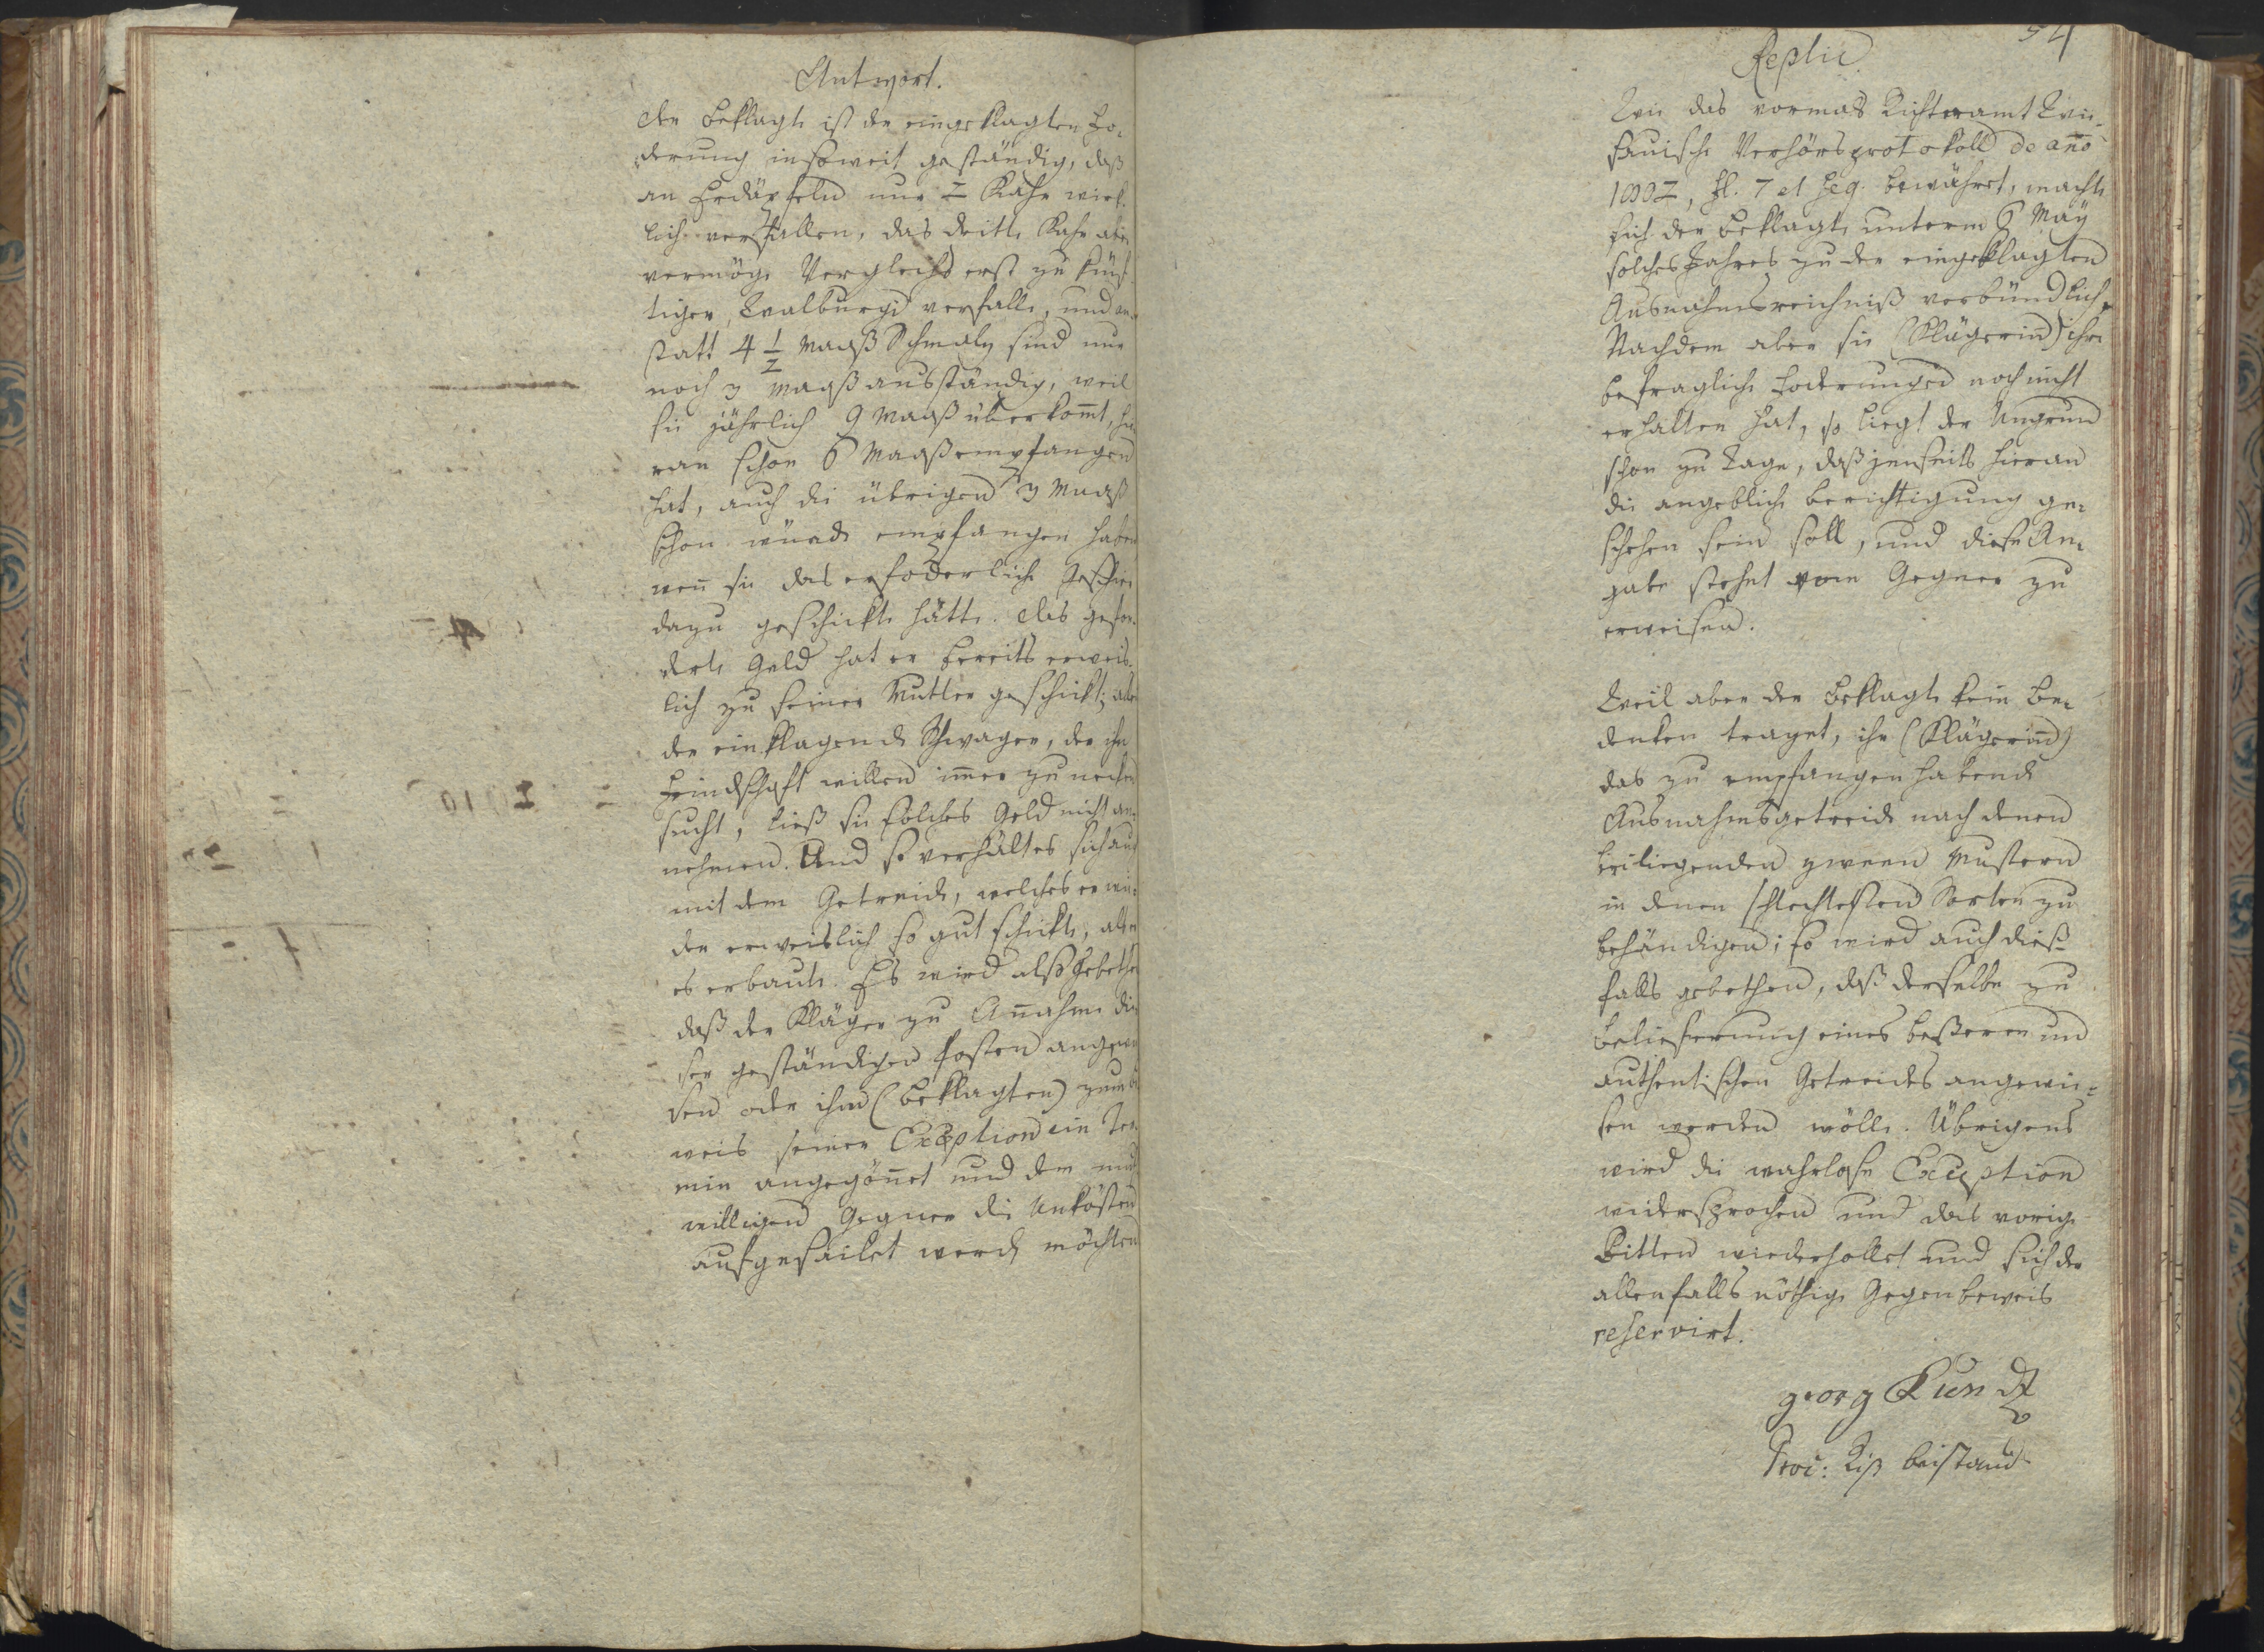 Antwort.
Der Beklagte ist der eingeklagten Fo-
derung insoweit geständig, daß
an Erdäpfeln nur 2 Kahr wirk-
lich verfallen, das dritte Kahr aber
vermöge Vergleichs erst zu künf-
tigen Walburgi verfalle, und an-
statt 4 1/2 Maaß Schmalz sind nur
noch 3 Maaß ausständig, weil
sie jährlich 9 Maaß überkomt, hie
ran schon 6 Maaß empfangen
hat, auch die übrigen 3 Maaß
schon würde empfangen haben
wen sie das erfoderliche Geschir
dazu geschickt hätte. Das gefor-
derte Geld hat er bereits erweis-
lich zu seiner Mutter geschickt; aber
der einklagende Schwager, der ihn
Feindschaft willen imer zu necken
sucht, ließ sie solches Geld nicht an-
nehmen. Und so verhält es sich auch
mit dem Getreide, welches er wie-
der erweislich so gut schickte, als er
es erbaute. Es wird also gebethen
daß der Kläger zu Anahme die
ser geständigen Posten angewie
sen oder ihm (Beklagten) zum Be
weis seiner Exception ein Ter-
min angegönet und dem muth
willigen Gegner die Unkösten
aufgefailet werden möchten
54
Replic
Wie das vormals Richteramt Twie-
sauische Verhörsprotokoll de ano
1802, fl. 7 et seq. bewähret, machte
sich der Beklagte unterm 6 May
solches Jahres zu der eingeklagten
Ausnahmsreichniß verbündlich,
Nachdem aber sie (Klägerin) ihre
befragliche Foderungen noch nicht
erhalten hat, so liegt der Ungrund
schon zu Tage, daß jenseits hieran
die angebliche Berichtigung ge-
schehen sein soll, und diese An-
gabe stehet vom Gegner zu
erweisen.
Weil aber der Beklagte kein Be-
denken traget, ihr (Klägerin)
das zu empfangen habende
Ausnahmsgetreide nach denen
beiliegenden zween Mustern
in denen schlechtesten Sorten zu
behändigen; so wird auch dieß-
falls gebethen, daß derselbe zu
Belieferung eines beßeren und
authentischen Getreides angewie-
sen werden wölle. Übrigens
wird die wahrlose Exception
widersprochen und das vorige
Bitten wiederhollet und sich der
allenfalls nöthige Gegenbeweis
reservirt.
georg Kun
Beistand